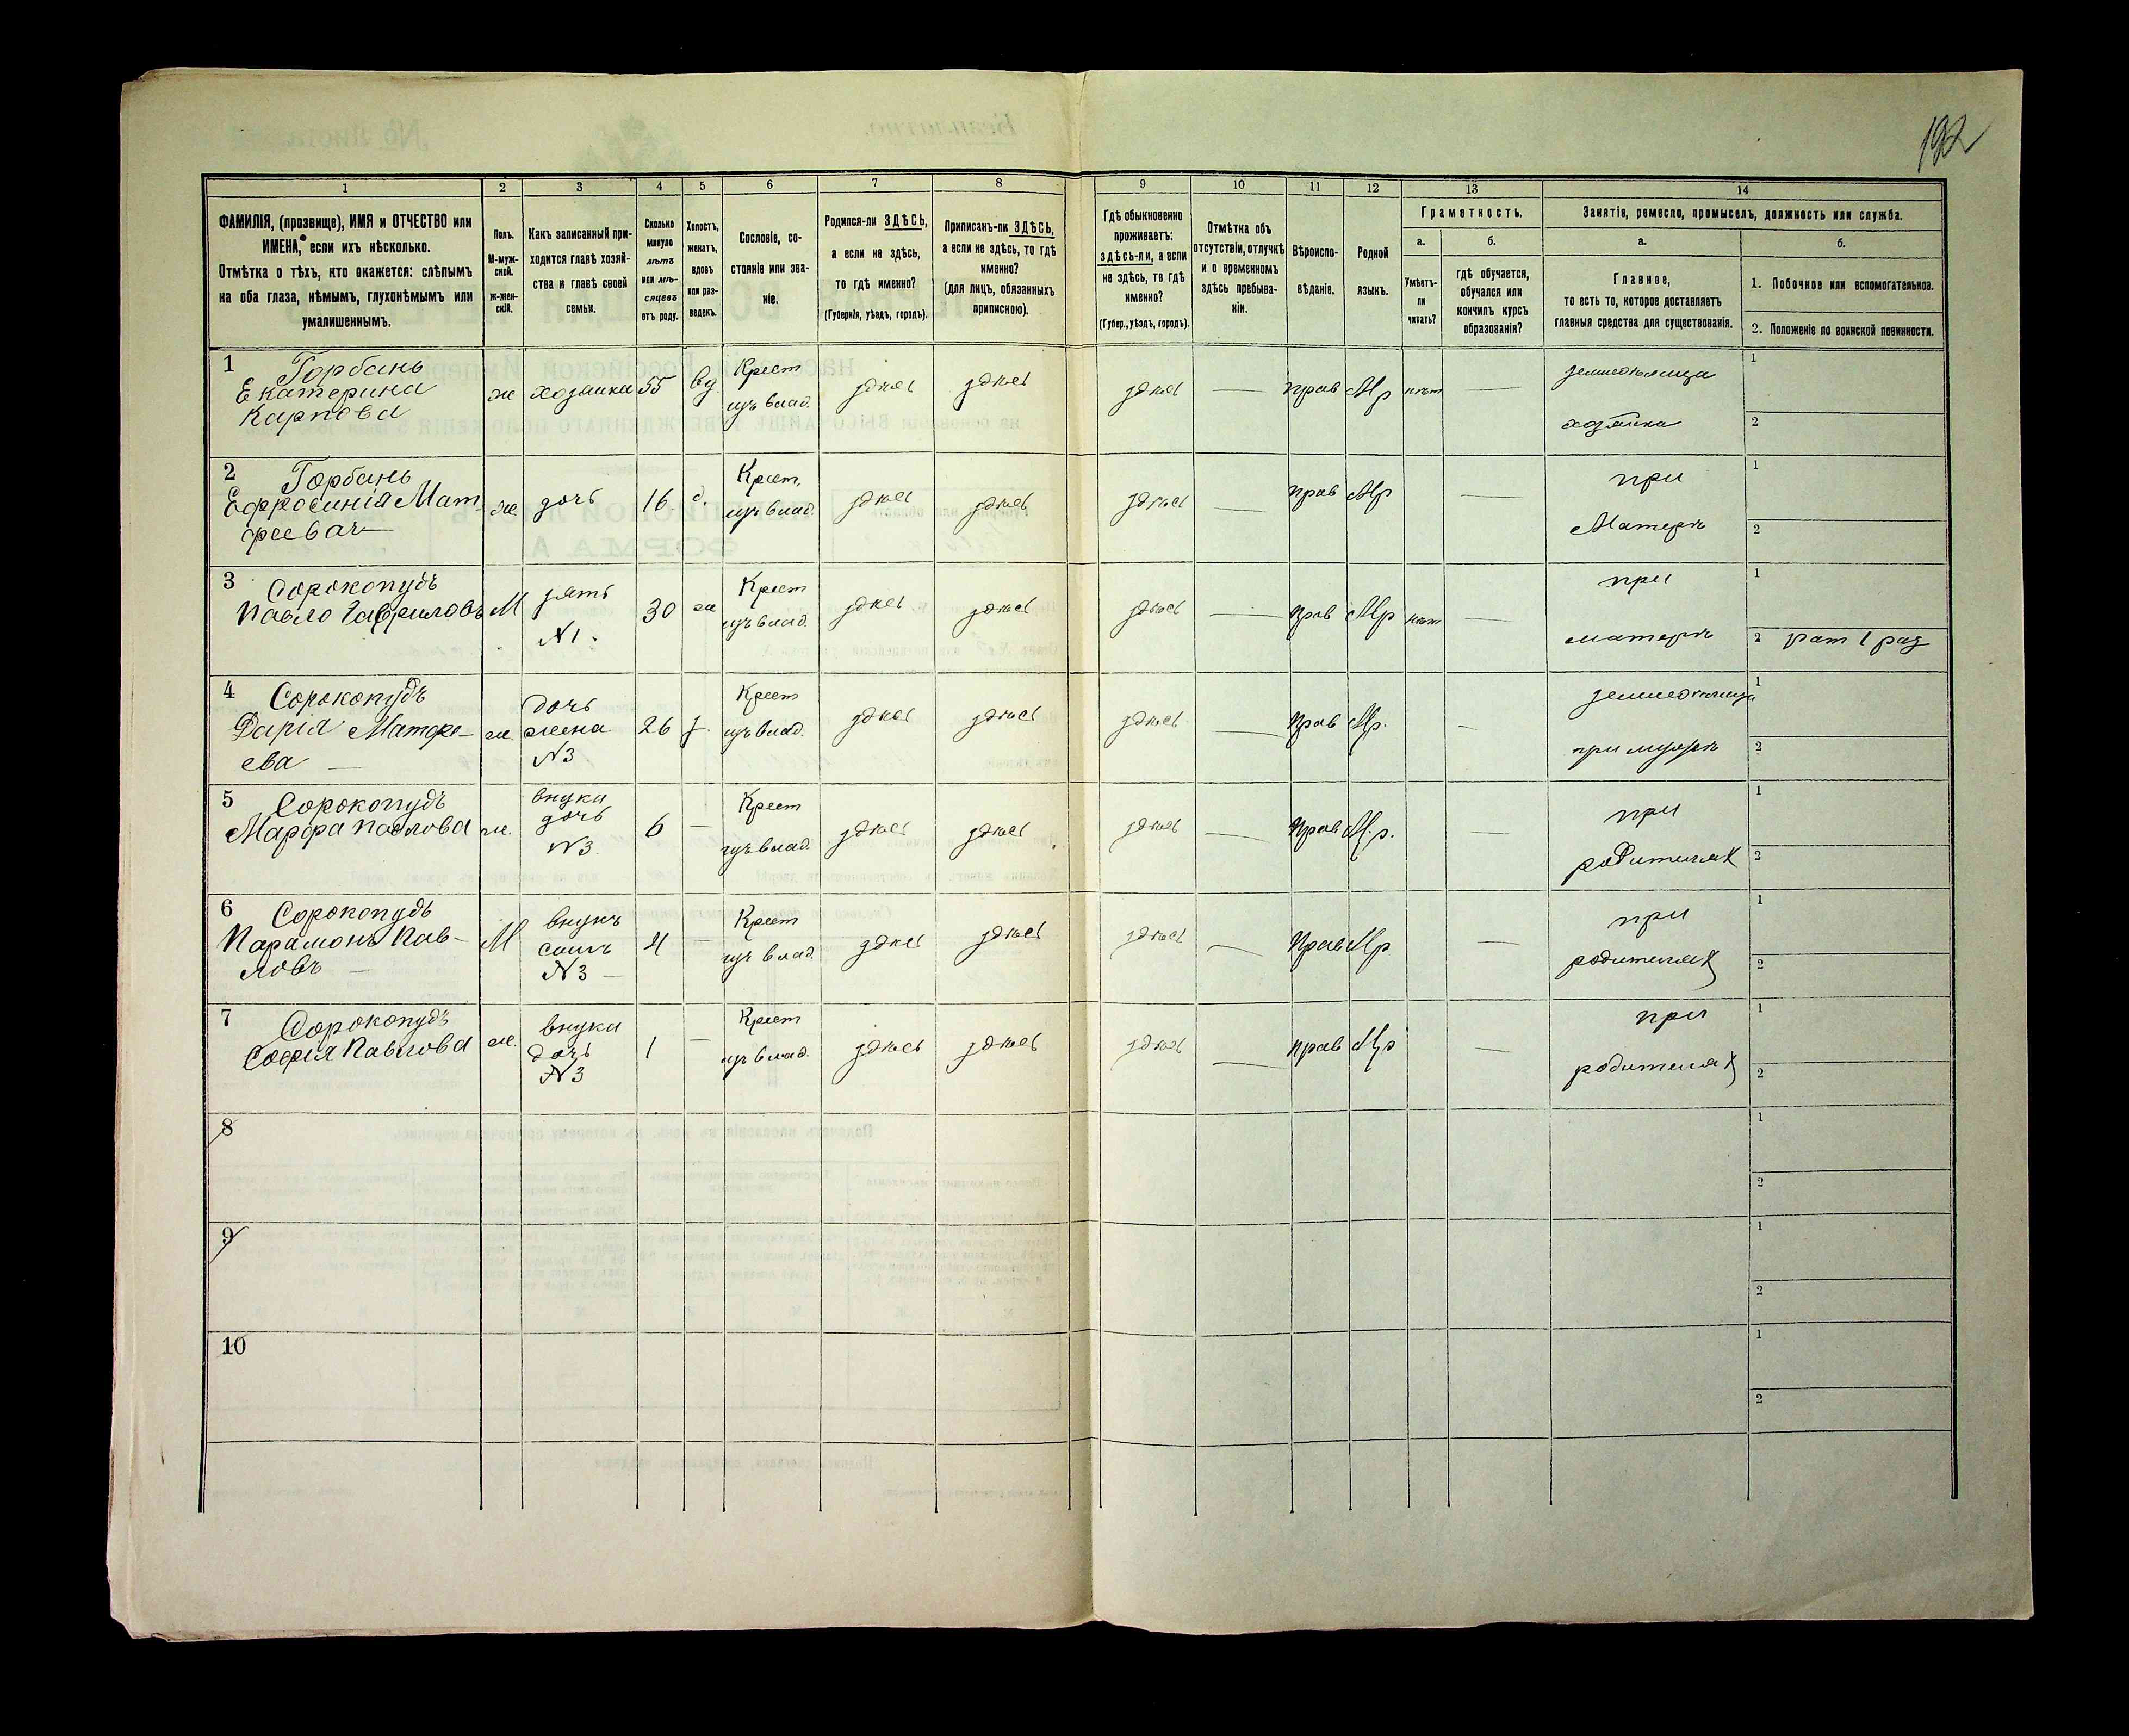 192
1
2
3
4
5
6
7
8
9
10
11
12
13
14
ФАМИЛІЯ, (прозвище), ИМЯ и ОТЧЕСТВО или
ИМЕНА, если ихъ нѣсколько.
Отмѣтка о тѣхъ, кто окажется: слѣпымъ
на оба глаза, нѣмымъ, глухонѣмымъ или
умалишеннымъ.
Полъ.
М-муж-
ской.
ж-жен-
скій.
Какъ записанный при-
ходится главѣ хозяй-
ства и главѣ своей
семьи.
Сколько
минуло
лѣтъ
или мѣ-
сяцевъ
отъ роду.
Холостъ,
женатъ,
вдовъ
или раз-
веденъ.
Сословіе, со-
стояніе или зва-
ніе.
Родился-ли ЗДѢСЬ,
а если не здѣсь,
то гдѣ именно?
(Губернія, уѣздъ, городъ).
Приписанъ-ли ЗДѢСЬ,
а если не здѣсь, то гдѣ
именно?
(для лицъ, обязанныхъ
припискою).
Гдѣ обыкновенно
проживаетъ:
здѣсь-ли, а если
не здѣсь, то гдѣ
именно?
(Губер., уѣздъ, городъ).
Отмѣтка объ
отсутствіи, отлучкѣ
и о временномъ
здѣсь пребыва-
ніи.
Вѣроиспо-
вѣданіе.
Родной
языкъ.
Грамотность.
а.
Умѣетъ-
ли
читать?
б.
гдѣ обучается,
обучался или
кончилъ курсъ
образованія?
Занятіе, ремесло, промыселъ, должность или служба.
а.
Главное,
то есть то, которое доставляетъ
главныя средства для существованія.
б.
1. Побочное или вспомогательное.
2. Положеніе по воинской повинности.
1 Горбань
Екатерина
Карпова
ж
хозяйка
55
вд.
Крест
изъ влад.
здѣсь
здѣсь
здѣсь
—
прав
Мр
нѣт
—
земледѣлица
хозяйка
1
2
2 Горбань
Ефросинія Мат
феева —
ж
дочь
16
д.
Крест,
изъ влад.
здѣсь
здѣсь
здѣсь
—
прав
Мр
—
при
Матери
1
2
3 Сорокопудъ
Павло Гавриловъ
М
зять
N 1.
30
ж
Крест
изъ влад.
здѣсь
здѣсь
здѣсь
—
прав
Мр
нѣт
—
при
матери
1
2 рат 1 раз
4 Сорокопудъ
Дарія Матфе-
ева —
ж.
дочь
жена
N 3
26
з.
Крест
изъ влад.
здѣсь
здѣсь
здѣсь
—
прав
Мр.
—
земледѣлица
при мужѣ
1
2
5 Сорокопудъ
Марфа Павлова
ж.
внука
дочь
N 3.
6
—
Крест
изъ влад.
здѣсь
здѣсь
здѣсь
—
прав
М.р.
—
при
родителях
1
2
6 Сорокопудъ
Парамонъ Пав-
ловъ —
М
внукъ
сынъ
N 3 —
4
—
Крест
изъ влад.
здѣсь
здѣсь
здѣсь
—
прав
Мр
—
при
родителях
1
2
7 Сорокопудъ
Софія Павлова
ж.
внука
дочь
N 3
1
—
Крест
изъ влад.
здѣсь
здѣсь
здѣсь
—
прав
Мр
—
при
родителях
1
2
8
1
2
9
1
2
10
1
2